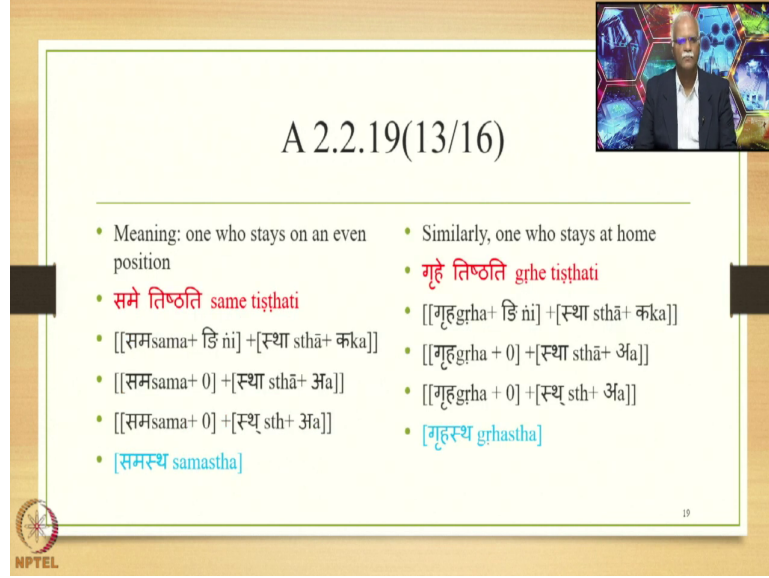 A 2.2.19(13/16)
• Meaning: one who stays on an even
position
• समे तिष्ठति same tiṣṭhati
• [[समsama+ ङि ṅi] +[स्था sthā+ कka]]
• [[समsama+ 0] +[स्था sthā+ अa]]
• [[समsama+ 0] +[स्थ् sth+ अa]]
• [समस्थ samastha]
• Similarly, one who stays at home
• गृहे तिष्ठति gṛhe tiṣṭhati
• [[गृहgṛha+ ङि ṅi] +[स्था sthā+ कka]]
• [[गृहgṛha + 0] +[स्था sthā+ अa]]
• [[गृहgṛha + 0] +[स्थ् sth+ अa]]
• [गृहस्थ gṛhastha]
19
NPTEL